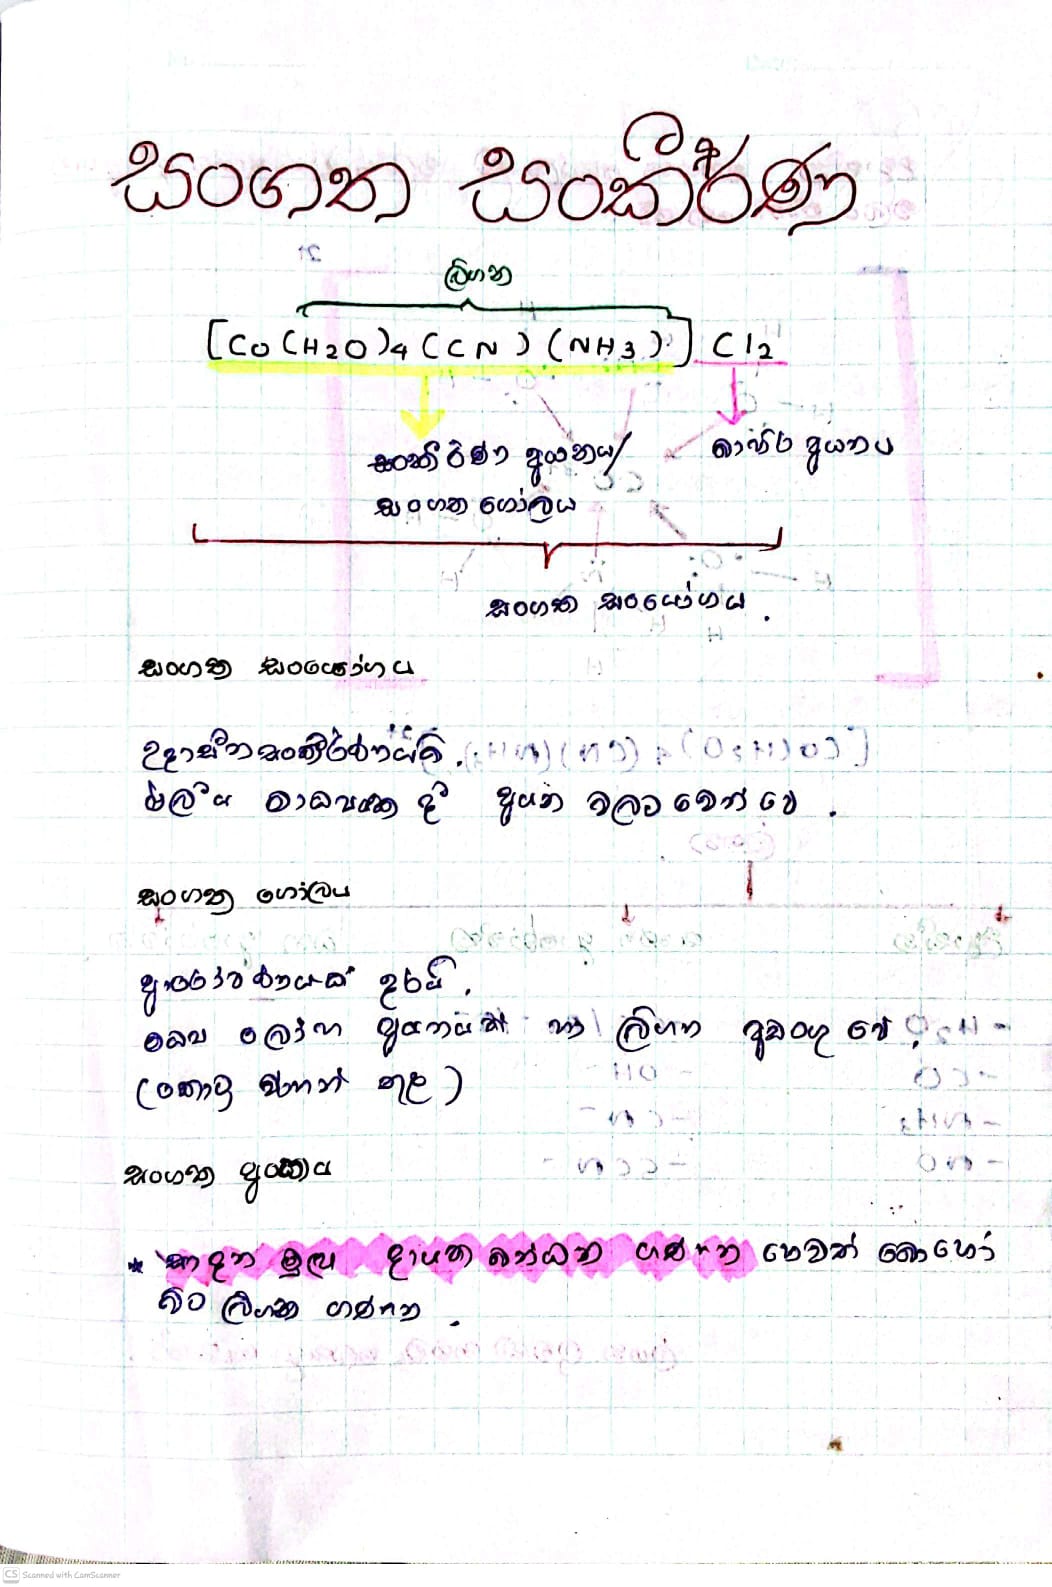 සංගත සංකීර්ණ
ලිගන
[Co(H2O)4(CN)(NH3)] Cl2
සංකීර්ණ අයනය/ බාහිර අයනය
සංගත ගෝලය
සංගත සංයෝගය.
සංගත සංයෝගය
උදාසීන සංකීර්ණයකි.
ජලීය මාධ්‍යක දී අයන වලට වෙන් වේ.
සංගත ගෝලය
ආරෝපණයක් උරයි.
මධ්‍ය ලෝහ අයනයක් හා ලිගන අඩංගු වේ.
(කොටු වහන් තුළ)
සංගත අංකය
* සාදන මුලු දායක බන්ධන ගණන හෙවත් බොහෝ
විට ලිගන ගණන.
CS Scanned with CamScanner